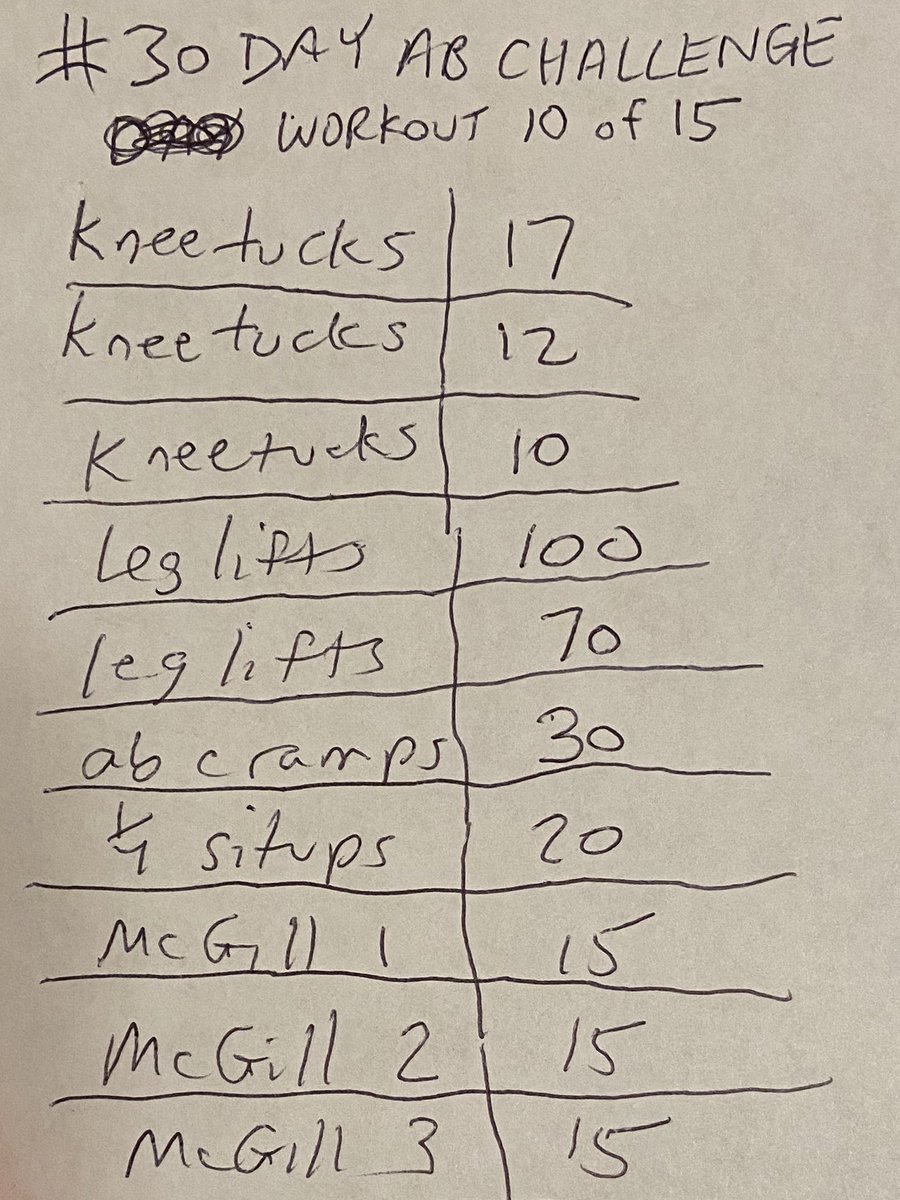 #30 DAY AB CHALLENGE
WORKOUT 10 of 15
Kneetucks 17
Kneetucks 12
Kneetucks 10
Leg lifts 100
leg lifts 70
ab cramps 30
1/4 situps 20
McGill 1 15
McGill 2 15
McGill 3 15